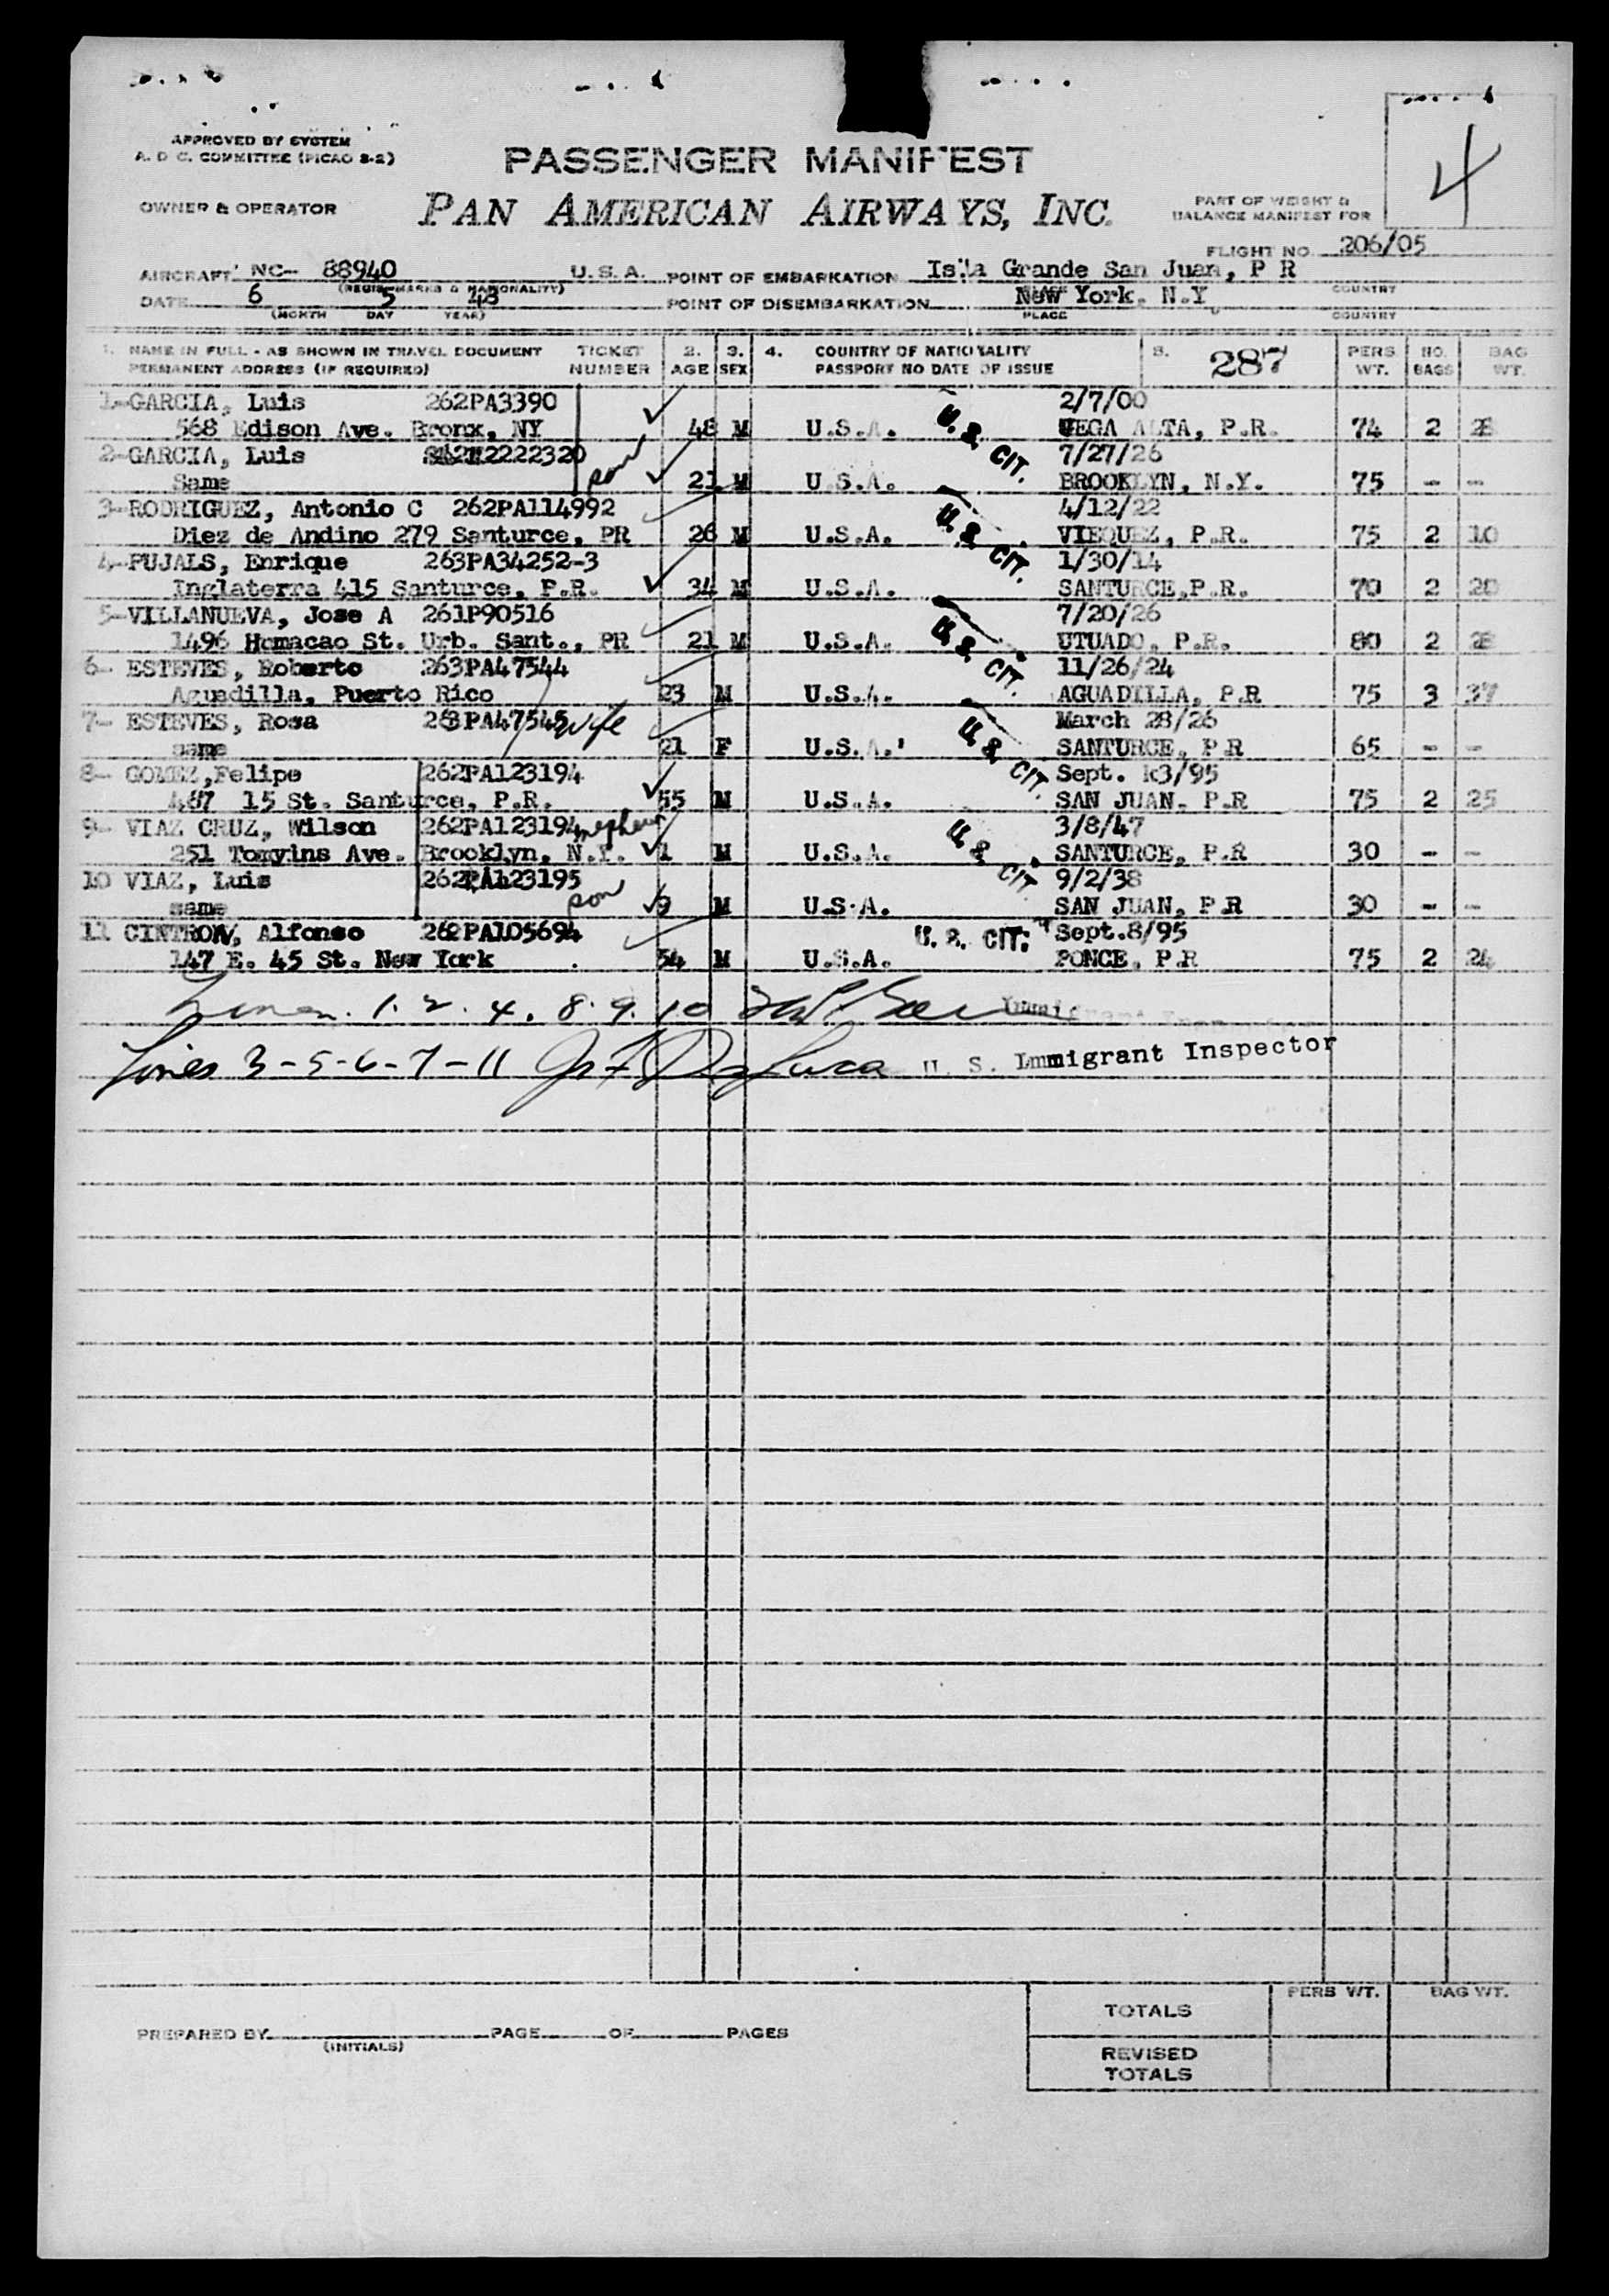 APPROVED BY SYSTEM
A. D C. COMMITTEE (PICAO 3-2)
PASSENGER MANIFEST
4
OWNER & OPERATOR
PAN AMERICAN AIRWAYS, INC.
PART OF WEIGHT &
BALANCE MANIFEST FOR
FLIGHT NO. 206/05
AIRCRAFT NC- 88940 U.S.A. POINT OF EMBARKATION Isla Grande San Juan, P R
(REGIS. MARKS & NATIONALITY) COUNTRY
DATE 6 5 48 POINT OF DISEMBARKATION New York. N.Y
(MONTH DAY YEAR) PLACE COUNTRY
1. NAME IN FULL - AS SHOWN IN TRAVEL DOCUMENT TICKET 2. 3. 4. COUNTRY OF NATIONALITY 5. 287 PERS NO. BAG
PERMANENT ADDRESS (IF REQUIRED) NUMBER AGE SEX PASSPORT NO DATE OF ISSUE WT. BAGS WT.
1-GARCIA, Luis 262PA3390 2/7/00
568 Edison Ave. Bronx, NY 48 M U.S.A. U. S. CIT. VEGA ALTA, P.R. 74 2 28
2-GARCIA, Luis 7/27/26
Same son 21 M U.S.A. BROOKLYN, N.Y. 75 - -
3-RODRIGUEZ, Antonio C 262PA114992 4/12/22
Diez de Andino 279 Santurce, PR 26 M U.S.A. U. S. CIT. VIEQUEZ, P.R. 75 2 10
4-PUJALS, Enrique 263PA34252-3 1/30/14
Inglaterra 415 Santurce, P.R. 34 M U.S.A. SANTURCE,P.R. 70 2 20
5-VILLANUEVA, Jose A 261P90516 7/20/26
1496 Homacao St. Urb. Sant., PR 21 M U.S.A. U. S. CIT. UTUADO, P.R. 80 2 28
6- ESTEVES, Roberto 263PA47544 11/26/24
Aguadilla, Puerto Rico 23 M U.S.A. AGUADILLA, P.R 75 3 37
7- ESTEVES, Rosa 263PA47545 wife March 28/26
same 21 F U.S.A. U. S. CIT. SANTURCE, P.R 65 - -
8- GOMEZ,Felipe 262PA123194 Sept. 13/95
467 15 St. Santurce, P.R. 55 M U.S.A. SAN JUAN. P.R 75 2 25
9- VIAZ CRUZ, Wilson 262PA123194 nephew 3/8/47
251 Ave. Brooklyn, N.Y. 1 M U.S.A. U. S. CIT. SANTURCE, P.R 30 - -
10 VIAZ, Luis 262PA123195 9/2/38
same son 9 M U.S.A. SAN JUAN, P.R 30 - -
11 CINTRON, Alfonso 262PA105694 U. S. CIT. Sept.8/95
147 E. 45 St. New York 54 M U.S.A. PONCE, P.R 75 2 24
1. 2. 4. 8. 9. 10
Lines 3-5-6-7-11 U. S. Immigrant Inspector
PERS WT. BAG WT.
TOTALS
PREPARED BY PAGE OF PAGES
(INITIALS)
REVISED
TOTALS